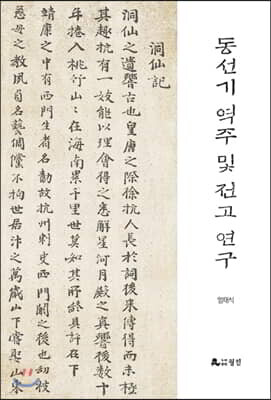 동선기 역주 및 전고 연구
엄태식
월인
洞仙記
洞仙之遺響古也皇唐之際徐抗人長於詞後來傳得而未極
其趣杭有一妓能以理會得之悉解星河月殿之真響後數十
年捲入桃竹山山在海南累千里世莫知其所終其許在下
靖康之中有西門生者名勣故杭州刺史西門之後也幼被
慈母之教夙負名藝倜儻不拘世居汴之萬歲山下